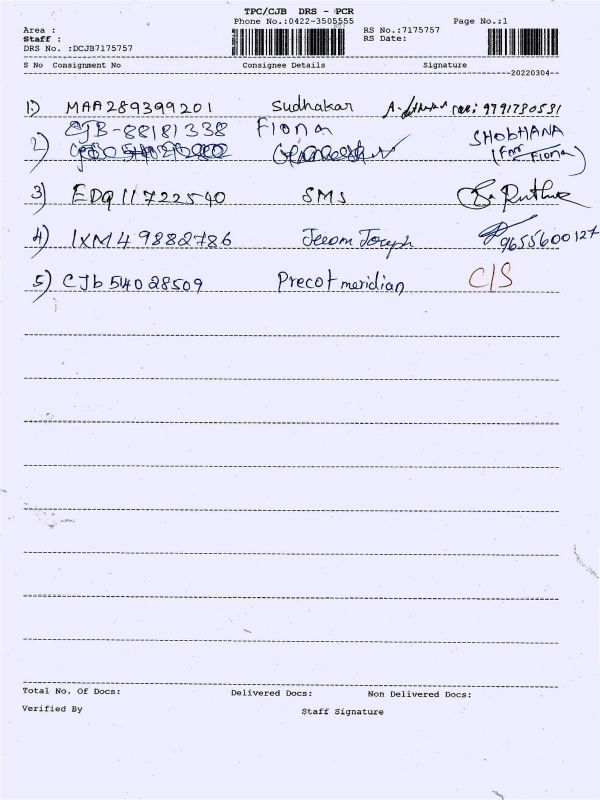 TPC/CJB DRS - PCR
Phone No.:0422-3505555 Page No.:1
Area : RS No.:7175757
Staff : RS Date:
DRS No. :DCJB7175757
S No Consignment No Consignee Details Signature
20220304
1.) MAA289399201 Sudhakar 9791730531
2) CJB-88181338 Fiona SHObHANA
(For Fiona)
3) EDQ11722540 SMS
4) IXM49882786 Jeeom Joseph 9655600127
5) CJb 54028509 Precot meridian C/S
Total No. Of Docs: Delivered Docs: Non Delivered Docs:
Verified By Staff Signature